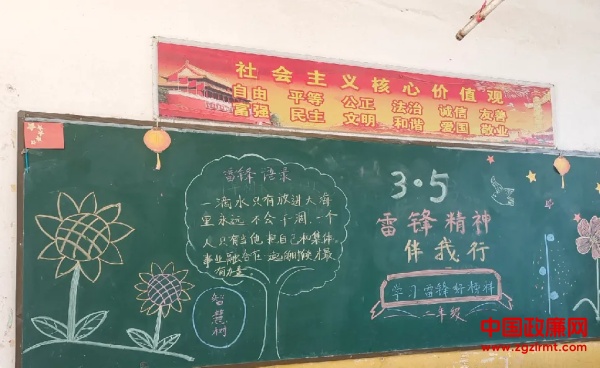 社会主义核心价值观
自由 平等 公正 法治 诚信 友善
富强 民主 文明 和谐 爱国 敬业
雷锋语录
一滴水只有放进大海
里永远不会干涸,一个
人只有当他把自己和集体
事业融合在一起的时候才最
有力量
智慧树
3·5
雷锋精神
伴我行
学习雷锋好榜样
二年级
中国政廉网
www.zgzlrmt.com